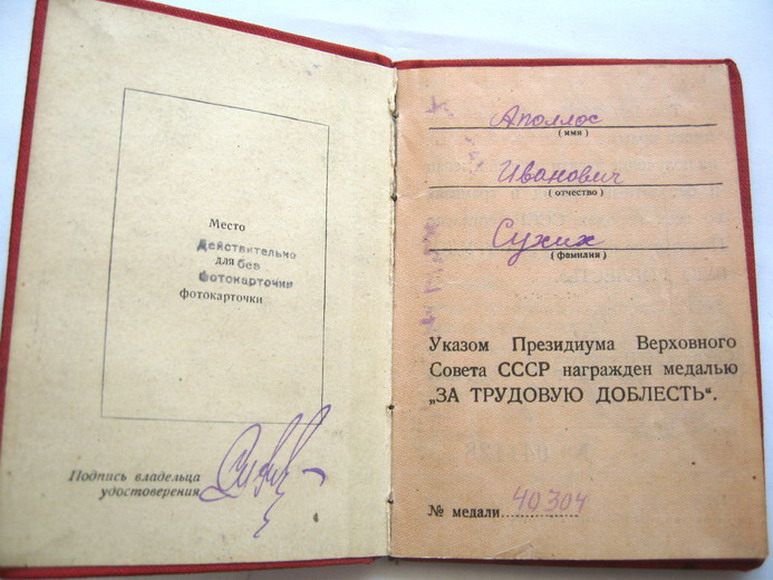 Место
Действительно
для без
фотокарточки
фотокарточки
Подпись владельца
удостоверения
Аполлос
(имя)
Иванович
(отчество)
Сухих
(фамилия)
Указом Президиума Верховного
Совета СССР награжден медалью
„ЗА ТРУДОВУЮ ДОБЛЕСТЬ“.
№ медали 40304